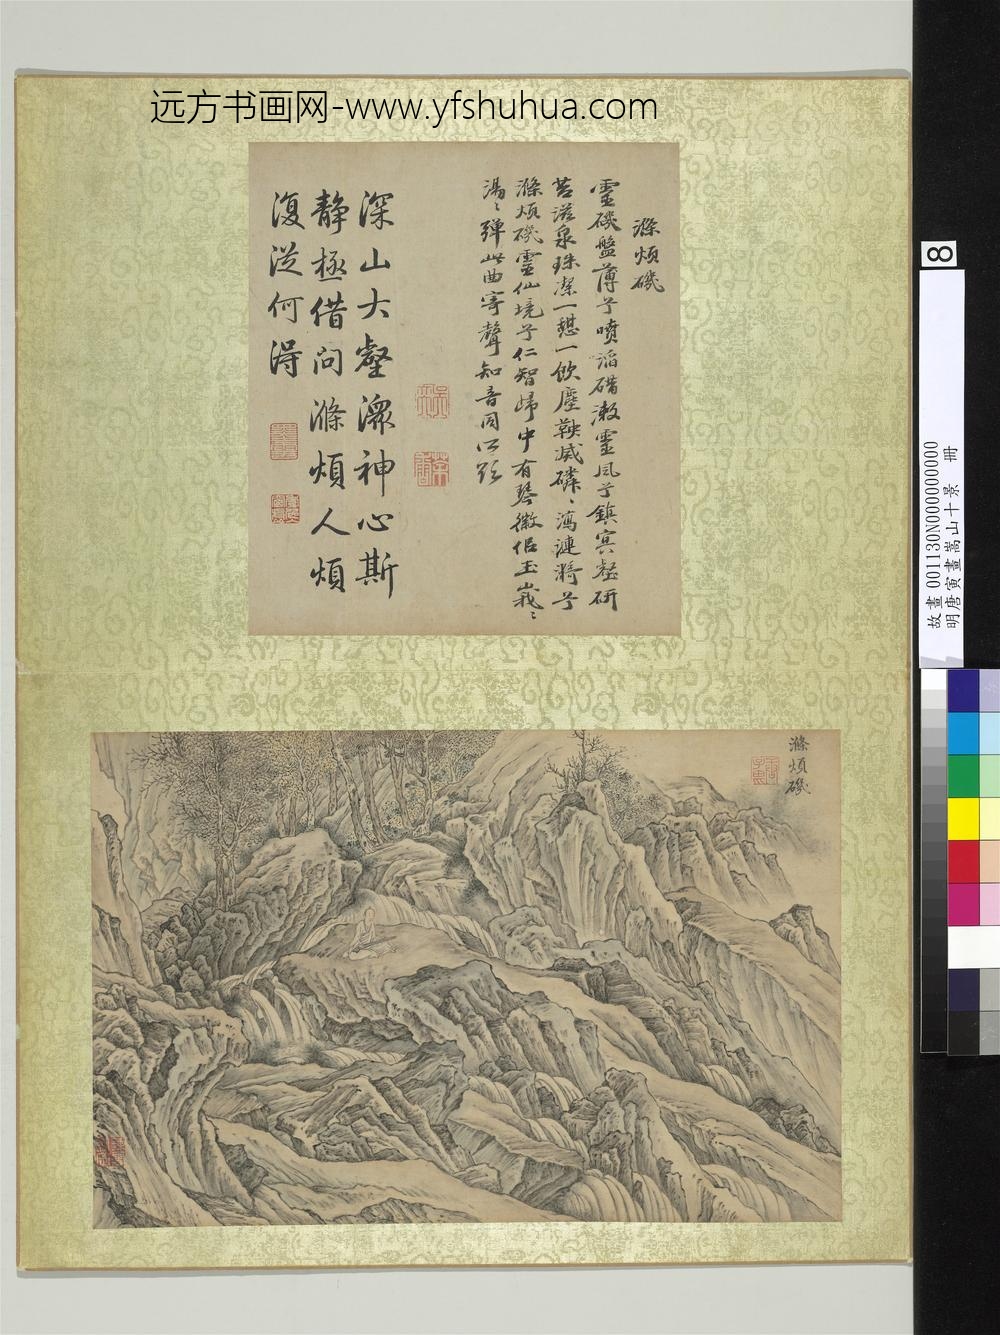 远方书画网-www.yfshuhua.com
滌煩磯
靈磯盤薄兮噴淊礌漱靈風兮鎮冥壑研
苔滋泉珠潔一憩一飲塵鞅滅磷〻漪漣漪兮
滌煩磯靈仙境兮仁智歸中有琴徽侶玉峩〻
湯〻彈此曲寄聲知音同所
深山大壑澂神心斯
靜極借問滌煩人煩
復從何得
滌煩磯
8
故畫 001130N000000000
明唐寅畫嵩山十景 冊